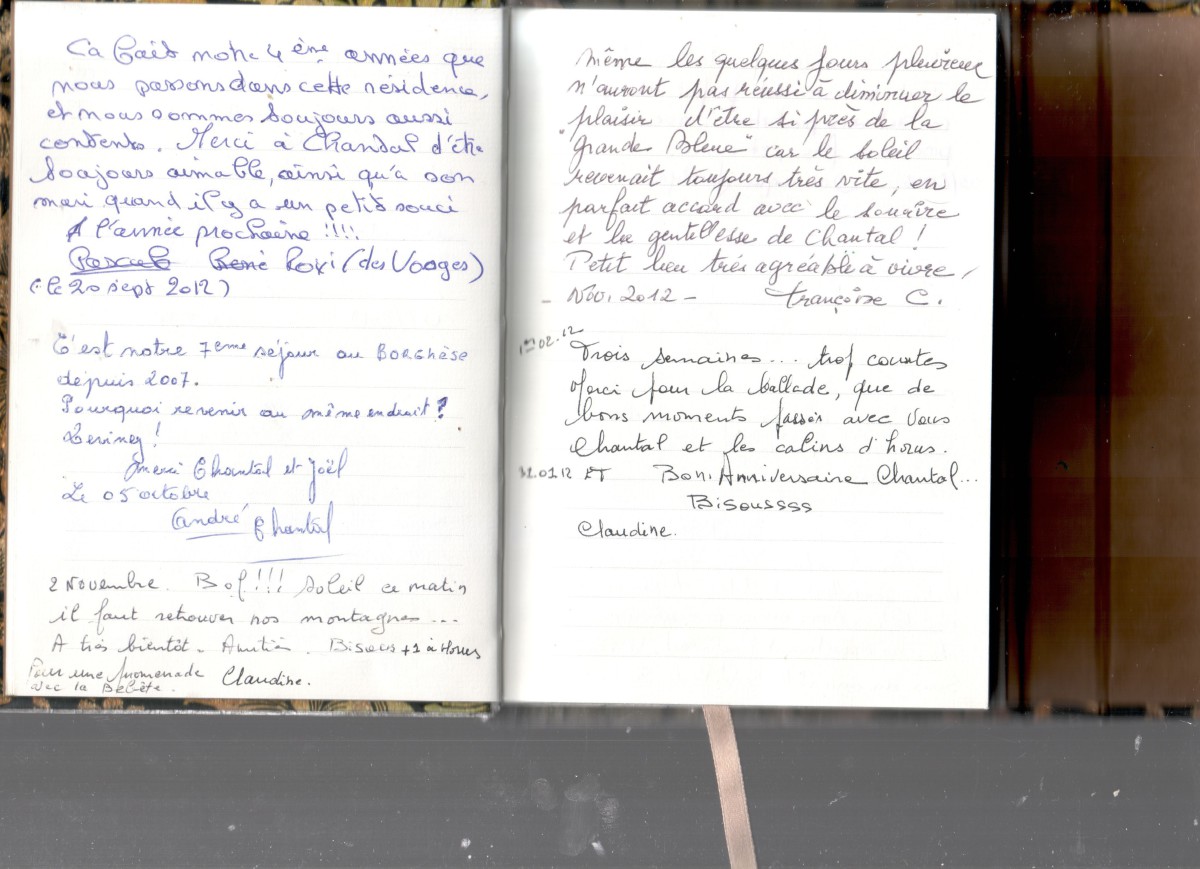 Ca fait notre 4ème années que
nous passons dans cette résidence,
et nous sommes toujours aussi
contents. Merci à Chantal d'être
toujours aimable, ainsi qu'à son
mari quand il y a un petit souci
A l'année prochaine !!!!
Pascale René (des Vosges)
(le 20 sept 2012)
C'est notre 7eme séjour au BORGHÈSE
depuis 2007.
Pourquoi revenir au même endroit ?
Devinez !
Merci Chantal et Joël
Le 05 octobre
André Chantal
2 Novembre. Bof !!! Soleil ce matin
il faut retrouver nos montagnes ...
A très bientôt. Amitié. Bisous +1 à Horus
Pour une promenade Claudine.
avec la Bébête.
même les quelques jours pluvieux
n'auront pas réussi à diminuer le
plaisir d'être si près de la
"Grande Bleue" car le soleil
revenait toujours très vite, en
parfait accord avec le sourire
et la gentillesse de Chantal !
Petit lieu très agréable à vivre,
- Nov. 2012 - Françoise C.
1er 02.12
Trois semaines ... trop courtes
Merci pour la ballade, que de
bons moments passés avec vous
Chantal et les calins d'horus.
31.01.12 ET Bon Anniversaire Chantal...
Bisoussss
Claudine.